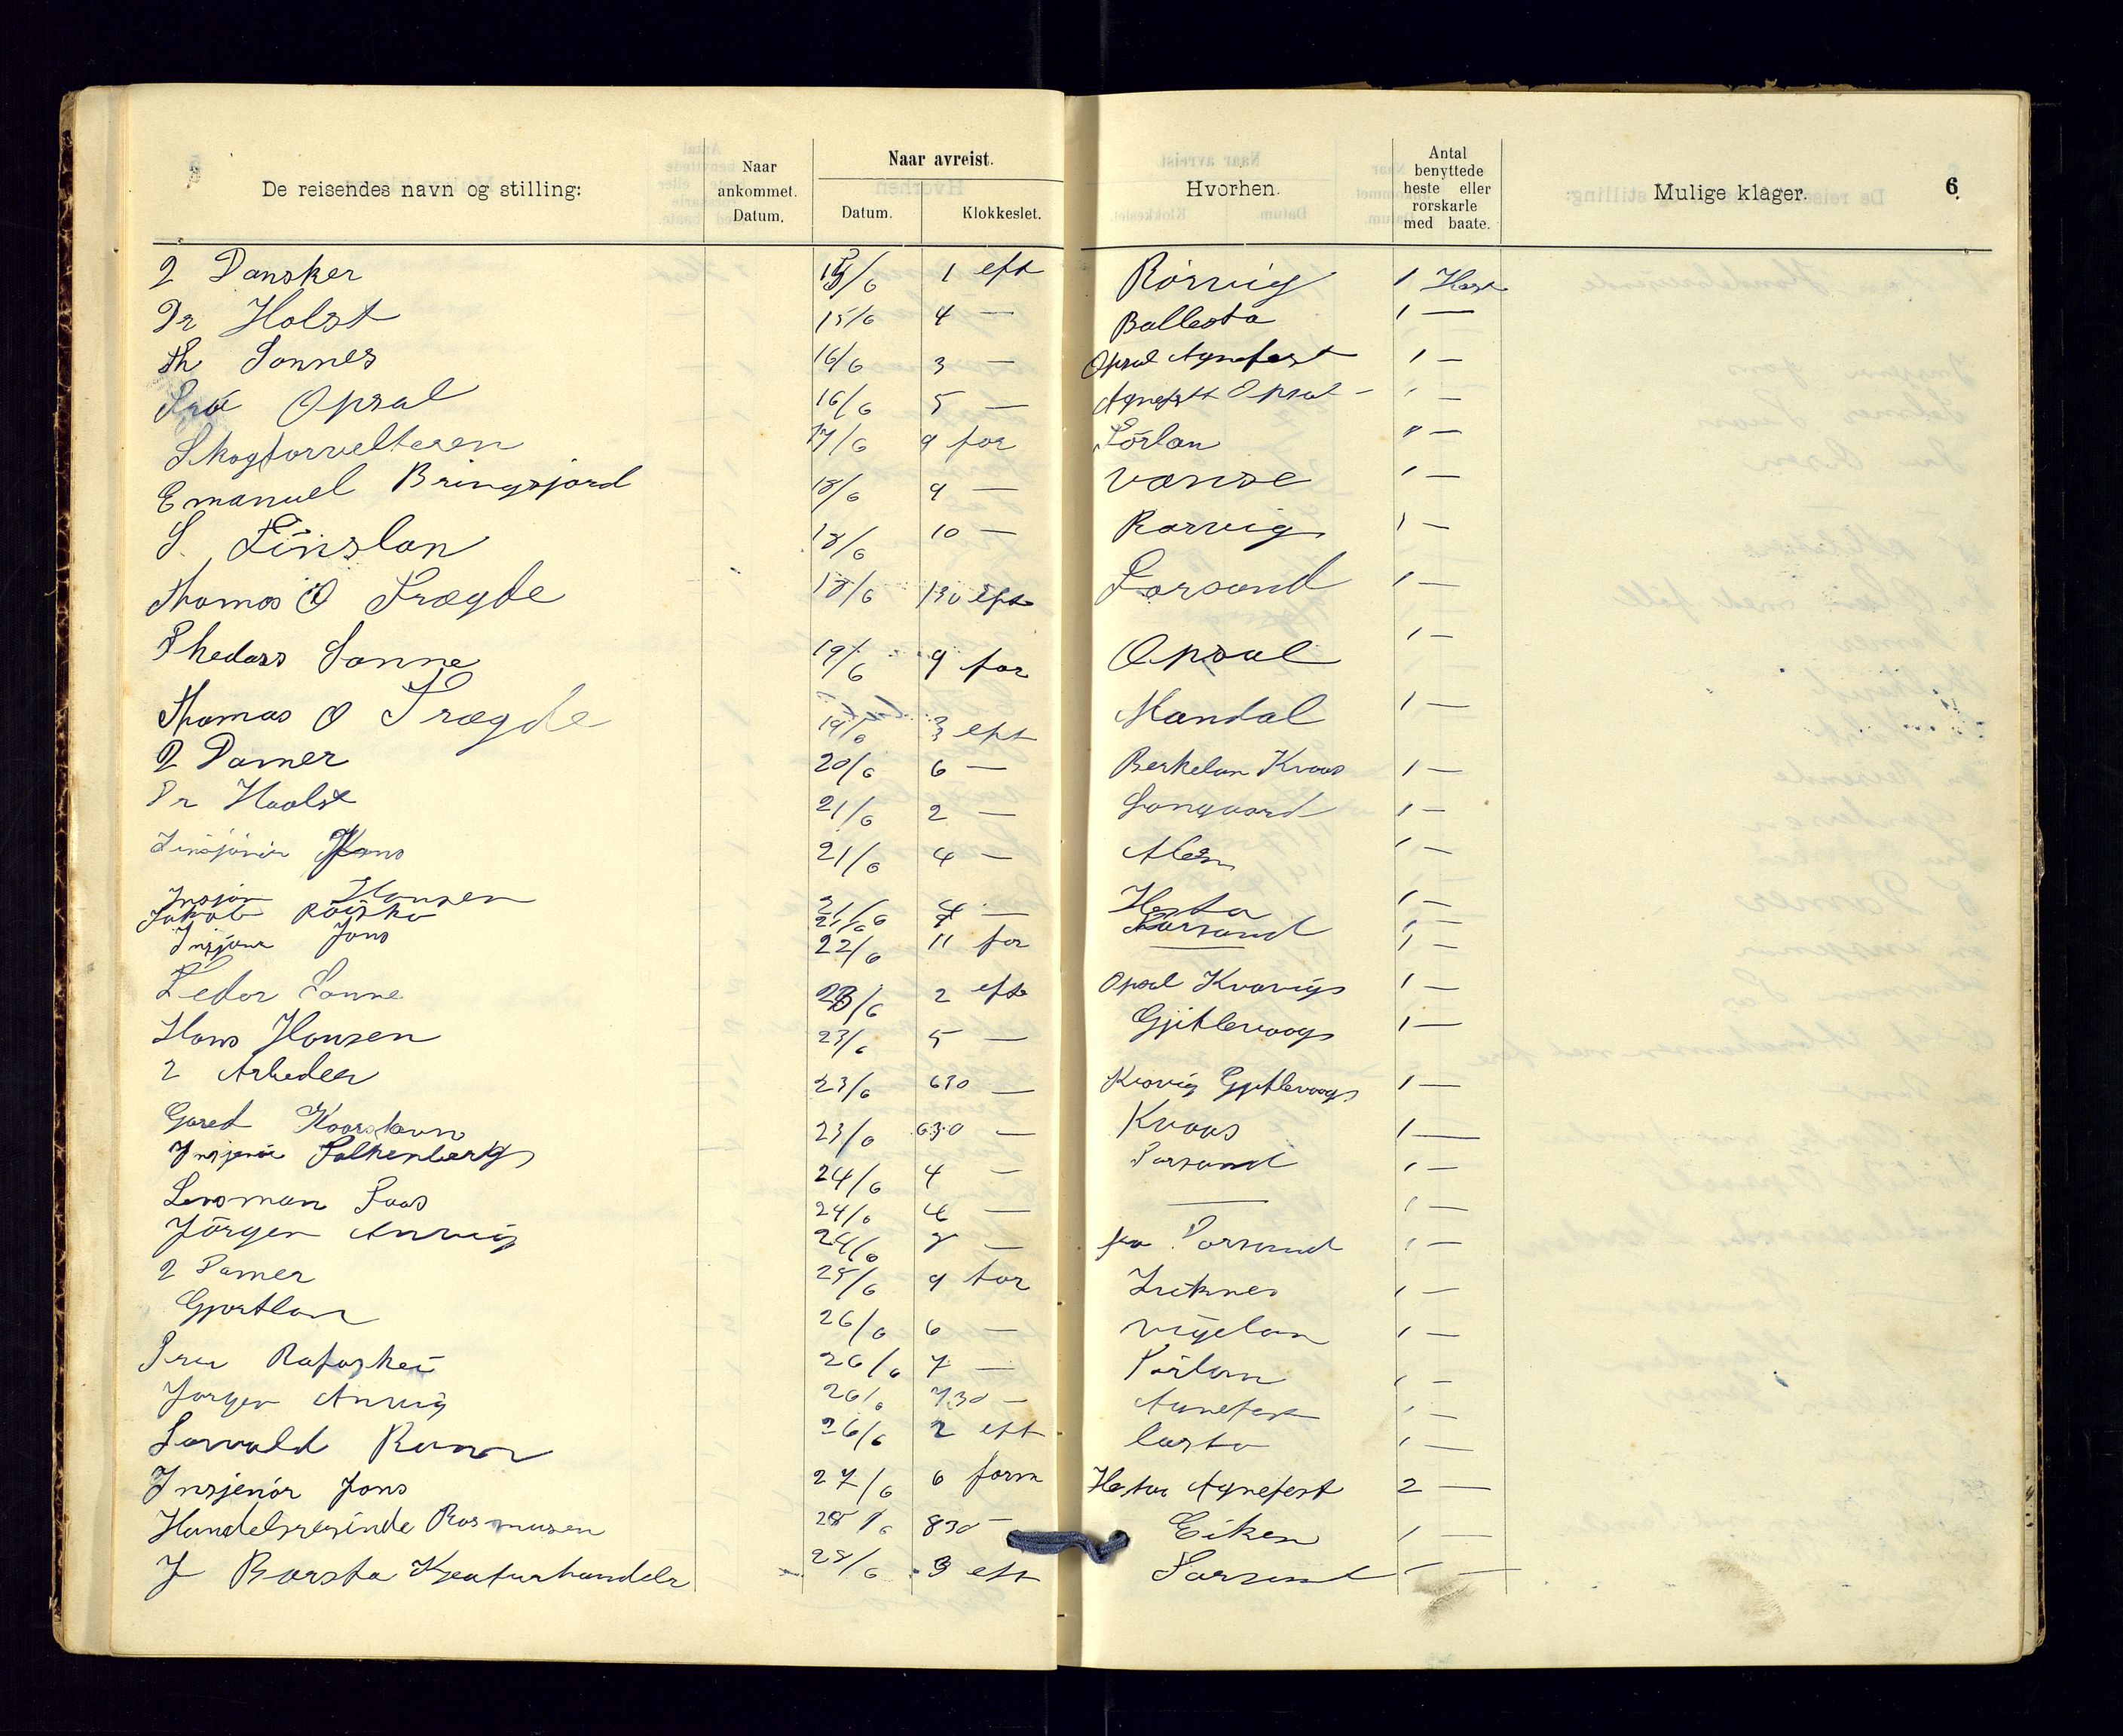 De reisendes navn og stilling: Naar ankommet. Datum. Naar avreist. Datum. Klokkeslet. Hvorhen. Antal benyttede heste eller rorskarle med baate. Mulige klager. 6
2 Dansker 15/6 1 eft Rörvig 1 Hest
Dr Holst 15/6 4 — Ballesta 1 —
Th Sonnes 16/6 3 — Opsal Agnefest 1 —
Frö Opsal 16/6 5 — Agnefest Opsal 1 —
Skogforvelteren 17/6 9 for Förlan 1 —
Emanuel Bringsjord 18/6 9 — Vanse 1 —
S. 18/6 10 — Rarvig 1 —
Thomas O Trægde 18/6 130 eft Farsund 1 —
Thedors Sonne 19/6 9 for Opsal 1 —
Thomas O Trægde 19/6 3 eft Mandal 1 —
2 Damer 20/6 6 — Berkelan Kvaas 1 —
Dr Haalst 21/6 2 — 1 —
21/6 4 — 1 —
Insjön Hansen 21/6 4 — 1 —
Jakob 21/6 Farsund 1 —
Jons 22/6 11 for — 1 —
Fedor Sonne 23/6 2 eft Opsal Kvavigs 1 —
Hans Hansen 23/6 5 — Gjitlevaags 1 —
2 Arbeder 23/6 630 — Kvavig Gjitlevaags 1 —
23/6 630 — Kvaas 1 —
Insjenör Falkenberg 24/6 4 — Farsund 1 —
Lensman Faas 24/6 — — 1 —
Jörgen Anvig 24/6 — fra Farsund 1 —
2 Damer 25/6 9 for 1 —
Gjertlan 26/6 6 — Vigelan 1 —
Rafoshei 26/6 7 — Förlan 1 —
Jorgen Anvig 26/6 730 — Agnefest 1 —
26/6 2 eft 1 —
Insjenör Jons 27/6 6 form Agnefest 2 —
Handelsresinde Rasmusen 28/6 830 — Eiken 1 —
J Barsta Kreaturhandelr 28/6 3 eft Farsund 1 —